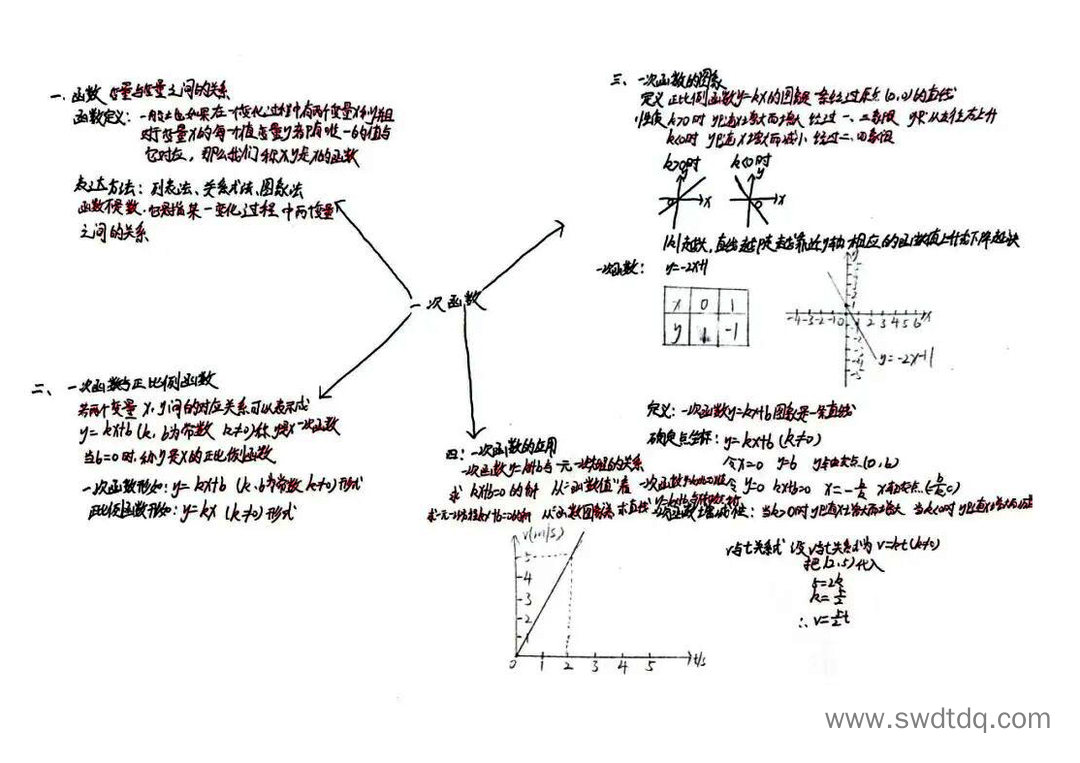 一次函数
一.函数 变量与变量之间的关系
函数定义：一般地如果在一个变化过程中有两个变量x和y并且
对于变量x的每一个值变量y都有唯一的值与
它对应，那么我们称y是x的函数
表达方法：列表法、关系式法、图象法
函数不是数，它是指某一变化过程中两个变量
之间的关系
二、一次函数与正比例函数
若两个变量x，y间的对应关系可以表示成
y=kx+b（k，b为常数 k≠0）称y是x一次函数
当b=0时，称y是x的正比例函数
一次函数形如：y=kx+b（k、b为常数 k≠0）形式
正比例函数形如：y=kx（k≠0）形式
三、一次函数的图象
定义 正比例函数y=kx的图象是一条经过原点(0,0)的直线
性质 k>0时 y随x增大而增大 经过一、三象限 从左往右上升
k<0时 y随x增大而减小 经过二、四象限
k>0时 k<0时
y y
0 x x
|k|越大，直线越陡越靠近y轴 相应的函数值上升或下降越快
一次函数： y=-2x+1
x 0 1
y 1 -1
y
-4-3-2-1 0 1 2 3 4 5 6 x
y=-2x+1
定义：一次函数y=kx+b图象是一条直线
确定点坐标：y=kx+b（k≠0）
令x=0 y=b y轴交点(0,b)
令y=0 kx+b=0 x=-b/k
当k>0时y随x增大而增大 当k<0时
四：一次函数的应用
一次函数y=kx+b与一元一次方程的关系
求kx+b=0的解 从"函数值"看
v(m/s)
5
4
3
2
1
0 1 2 3 4 5 t/s
v与t关系式 设v与t关系式为v=kt（k≠0）
把(2,5)代入
5=2k
k=5/2
∴v=5/2t
www.swdtdq.com